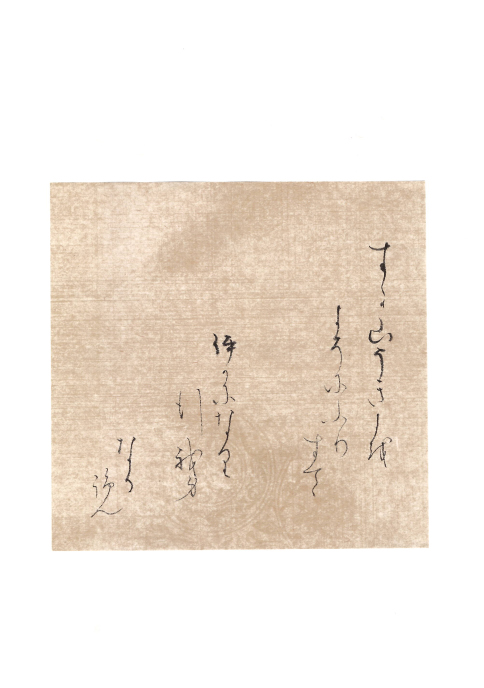 すゝか山うき世を
よそにふり
すてゝ
いかになり
行我身
なる
らん